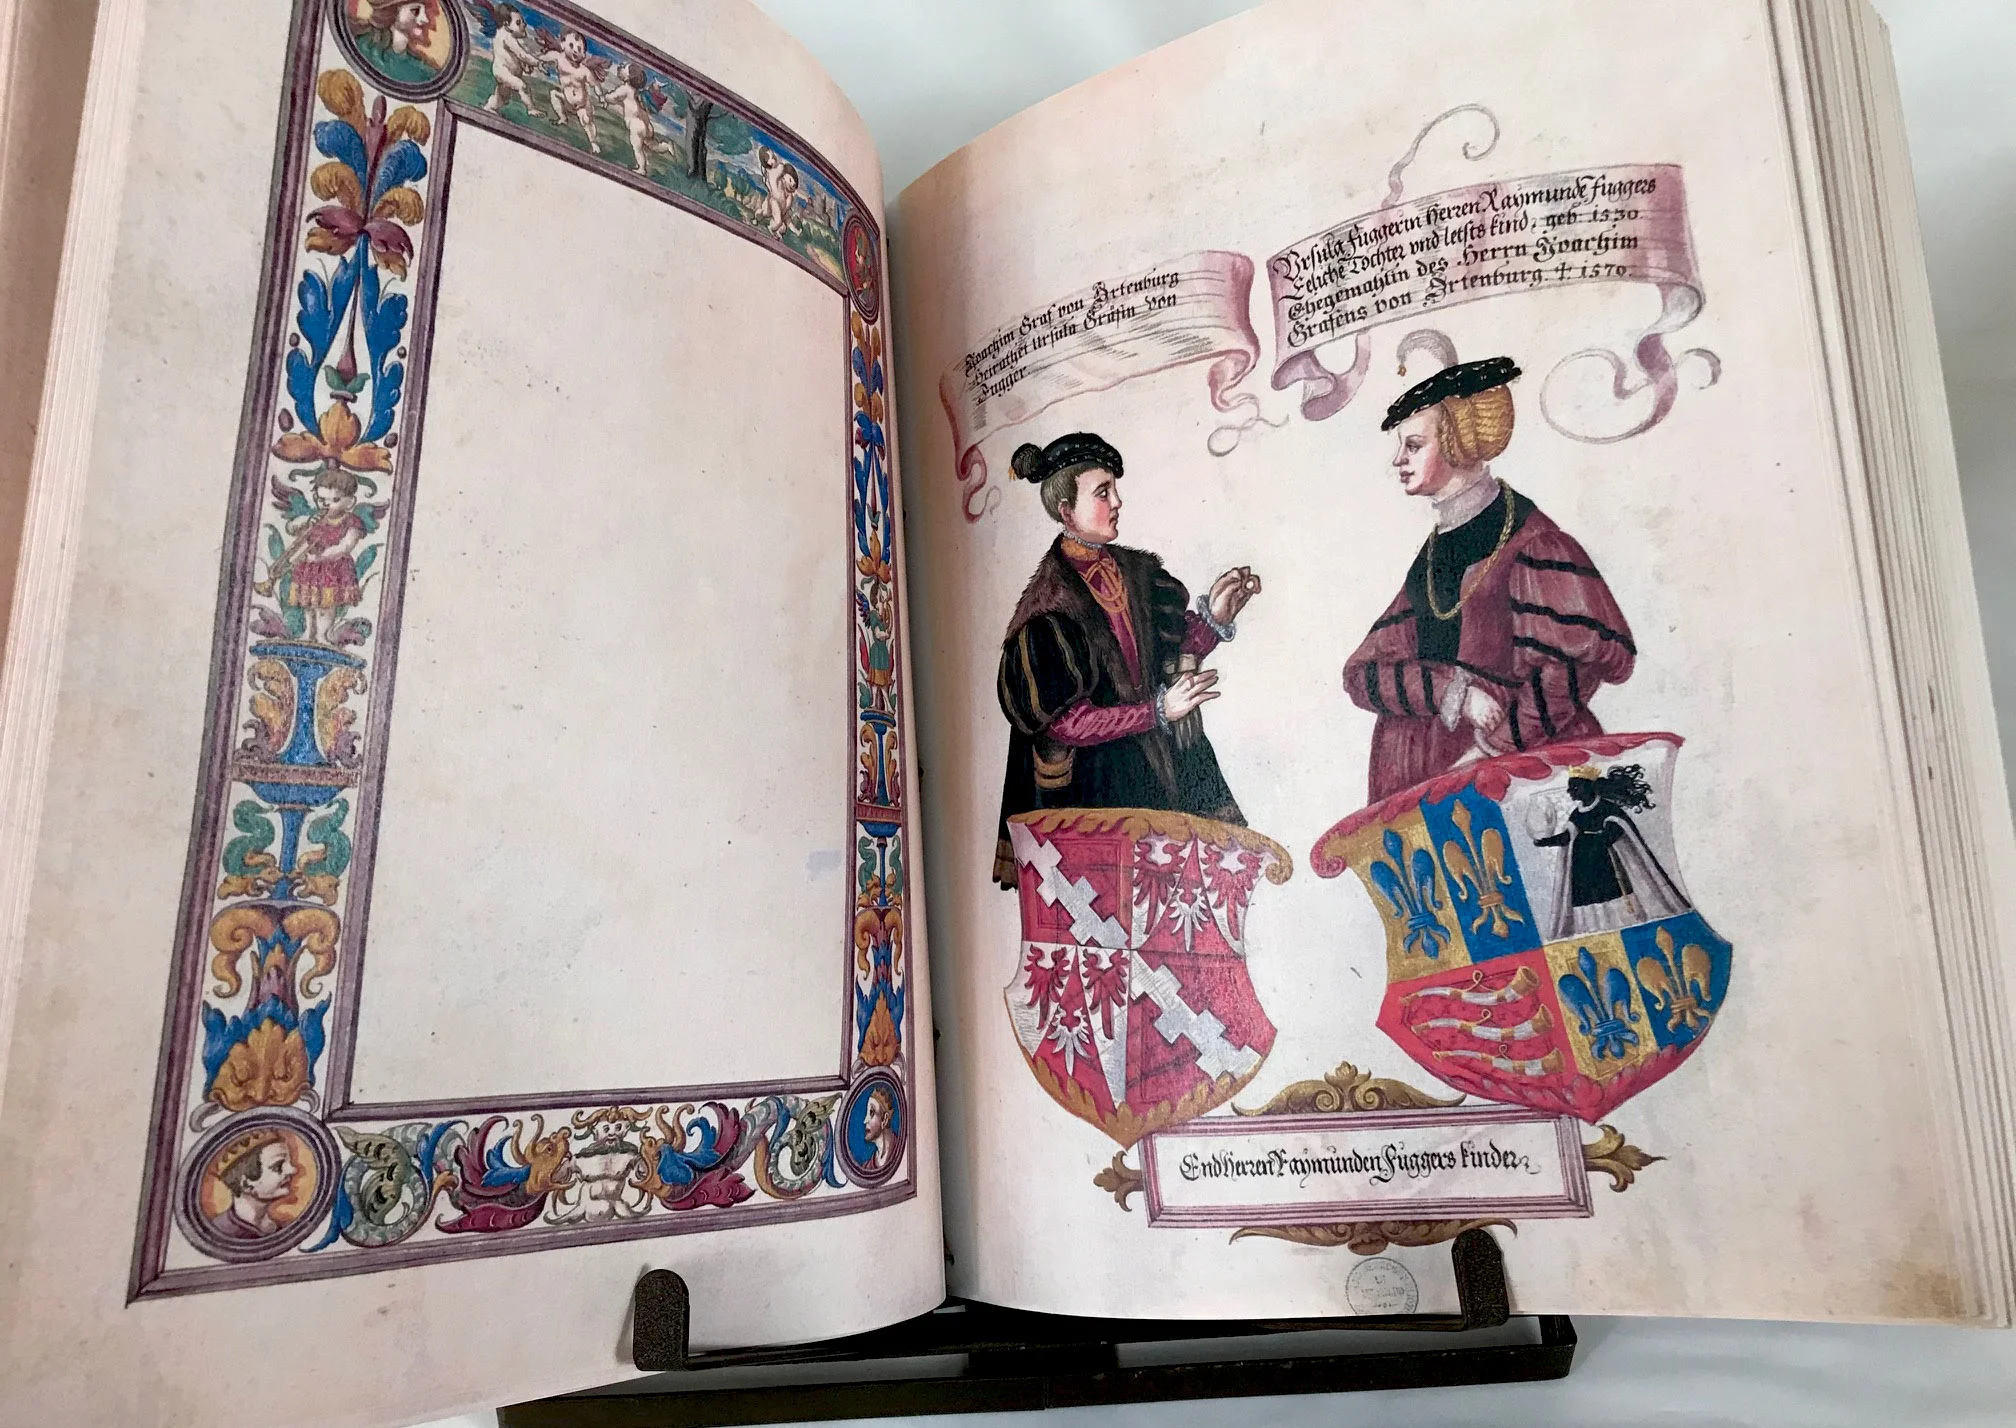 Joachim Graf von Ortenburg
heirathet Ursula Gräfin von
Fugger.
Vrsula Fuggerin Herren Raymunde Fuggers
Eeliche Tochter vnd letsts kind, geb: 1530.
Ehegemahlin des Herrn Joachim
Grafens von Ortenburg. † 1570.
End Herren Raymunden Fuggers kinder